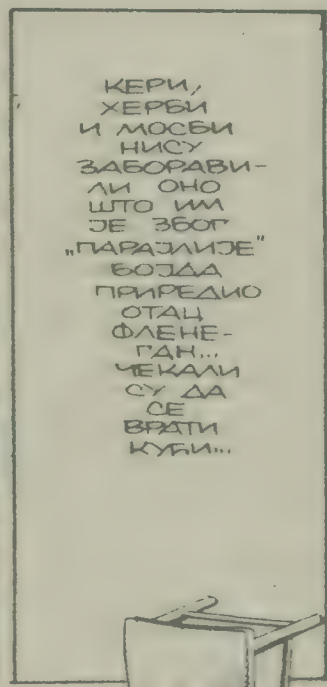 КЕРИ,
ХЕРБИ
И МОСБИ
НИСУ
ЗАБОРАВИ-
ЛИ ОНО
ШТО ИМ
ЈЕ ЗБОГ
„ПАРАЈЛИЈЕ"
БОЈДА
ПРИРЕДИО
ОТАЦ
ФЛЕНЕ-
ГАН...
ЧЕКАЛИ
СУ ДА
СЕ
ВРАТИ
КУЋИ...